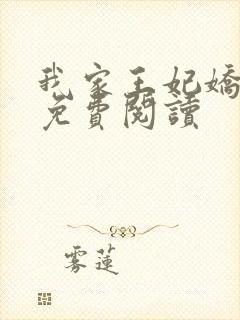 我家王妃嬌
免費閱讀
雾蓮